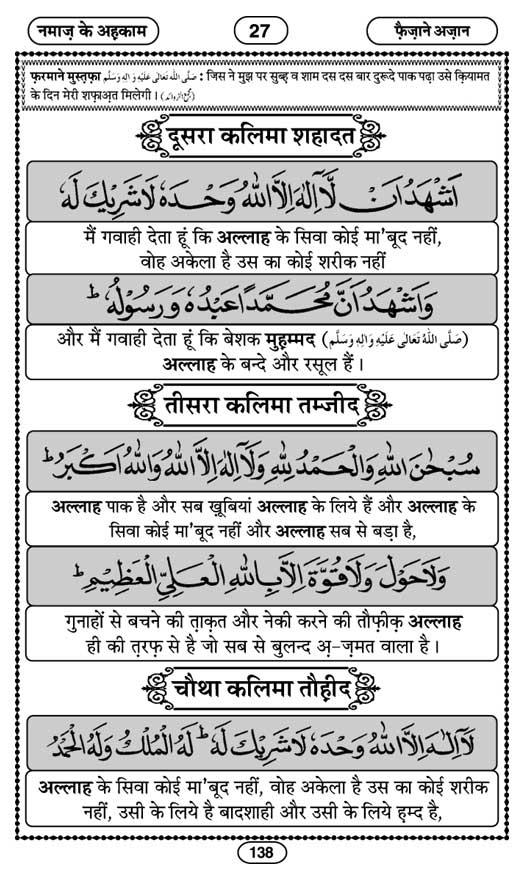 नमाज़ के अह़काम
27
फ़ैज़ाने अज़ान
फ़रमाने मुस्त़फ़ा صَلَّى اللّٰهُ تَعَالٰى عَلَيْهِ وَاٰلِهٖ وَسَلَّم : जिस ने मुझ पर सुब्ह़ व शाम दस दस बार दुरूदे पाक पढ़ा उसे क़ियामत
के दिन मेरी शफ़ाअ़त मिलेगी।
दूसरा कलिमा शहादत
اَشْهَدُ اَنْ لَّآ اِلٰهَ اِلَّا اللّٰهُ وَحْدَهٗ لَا شَرِيْكَ لَهٗ
मैं गवाही देता हूं कि अल्लाह के सिवा कोई मा'बूद नहीं,
वोह अकेला है उस का कोई शरीक नहीं
وَاَشْهَدُ اَنَّ مُحَمَّدًا عَبْدُهٗ وَرَسُوْلُهٗ ؕ
और मैं गवाही देता हूं कि बेशक मुह़म्मद (صَلَّى اللّٰهُ تَعَالٰى عَلَيْهِ وَاٰلِهٖ وَسَلَّم)
अल्लाह के बन्दे और रसूल हैं।
तीसरा कलिमा तम्जीद
سُبْحٰنَ اللّٰهِ وَالْحَمْدُ لِلّٰهِ وَلَآ اِلٰهَ اِلَّا اللّٰهُ وَاللّٰهُ اَكْبَرُ ؕ
अल्लाह पाक है और सब ख़ूबियां अल्लाह के लिये हैं और अल्लाह के
सिवा कोई मा'बूद नहीं और अल्लाह सब से बड़ा है,
وَلَا حَوْلَ وَلَا قُوَّةَ اِلَّا بِاللّٰهِ الْعَلِيِّ الْعَظِيْمِ ؕ
गुनाहों से बचने की त़ाक़त और नेकी करने की तौफ़ीक़ अल्लाह
ही की त़रफ़ से है जो सब से बुलन्द अ़-ज़मत वाला है।
चौथा कलिमा तौह़ीद
لَآ اِلٰهَ اِلَّا اللّٰهُ وَحْدَهٗ لَا شَرِيْكَ لَهٗ ؕ لَهُ الْمُلْكُ وَلَهُ الْحَمْدُ
अल्लाह के सिवा कोई मा'बूद नहीं, वोह अकेला है उस का कोई शरीक
नहीं, उसी के लिये है बादशाही और उसी के लिये ह़म्द है,
138